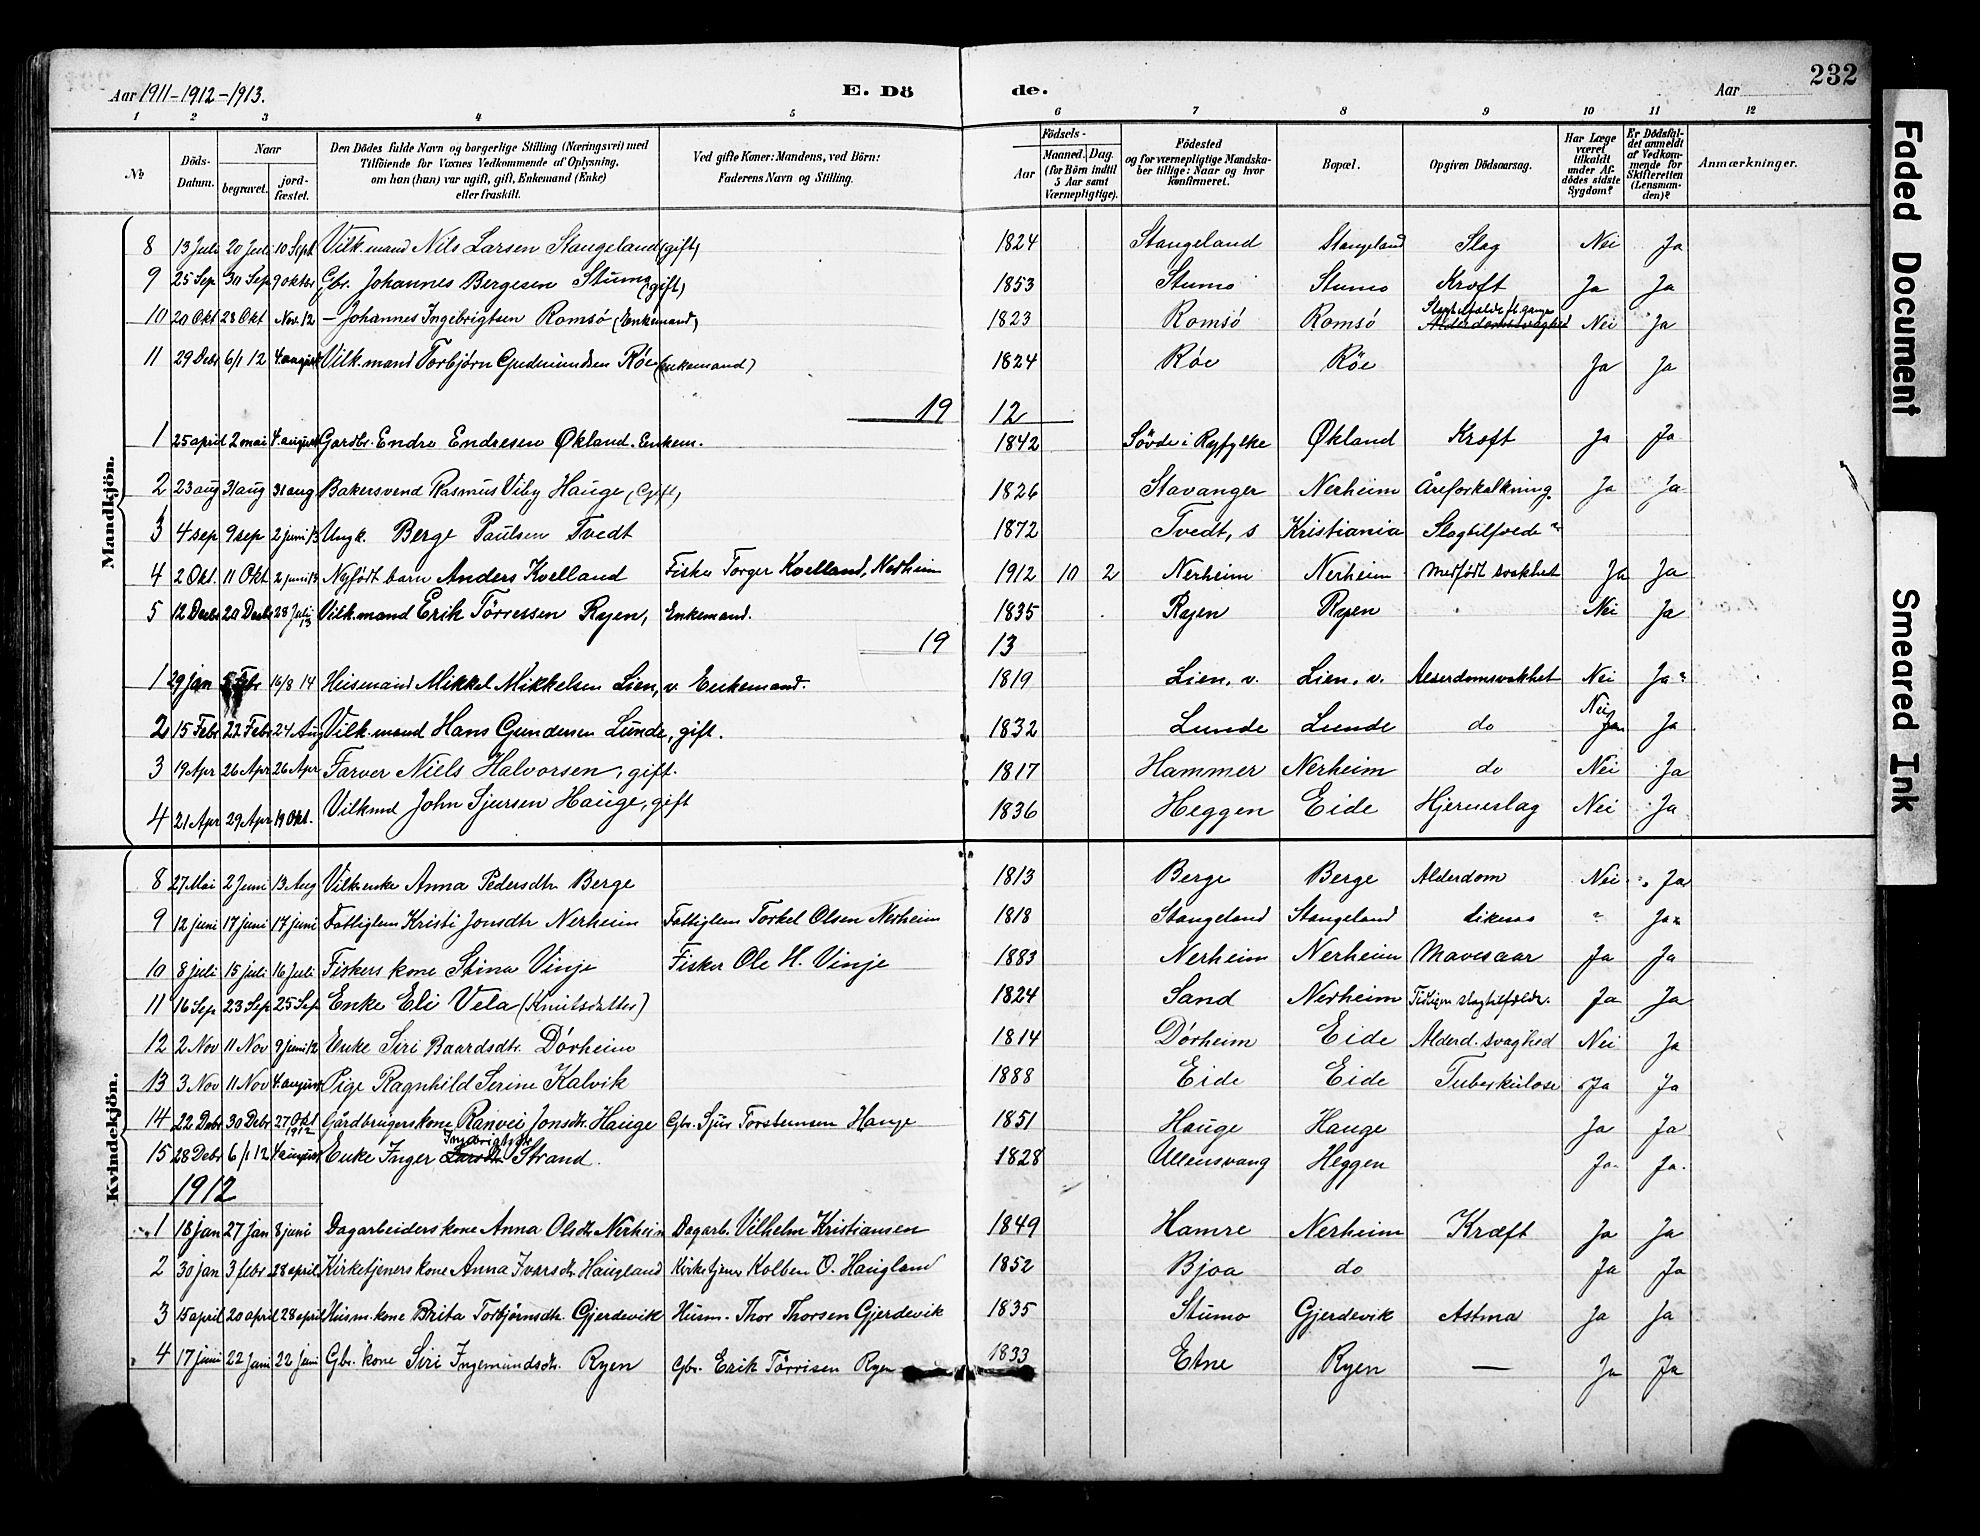 232
Aar 1911-1912-1913. E. Dö de. Aar
1 2 3 4 5 6 7 8 9 10 11 12
No Döds-Datum. Naar begravet. jord-fæstet. Den Dödes fulde Navn og borgerlige Stilling (Næringsvei) med Tilföiende for Voxnes Vedkommende af Oplysning, om han (hun) var ugift, gift, Enkemand (Enke) eller fraskilt. Ved gifte Koner: Mandens, ved Börn: Faderens Navn og Stilling. Födsels- Aar Maaned. Dag. (for Börn indtil 5 Aar samt Værnepligtige). Födested og for værnepligtige Mandskaber tillige: Naar og hvor Konfirmeret. Bopæl. Opgiven Dödsaarsag. Har Læge været tilkaldt under Afdödes sidste Sygdom? Er Dödsfaldet anmeldt af Vedkommende for Skifteretten (Lensmanden)? Anmærkninger.
Mandkjön.
8 13 Juli 20 Juli 10 Sept Vilk.mand Nils Larsen Stangeland (gift) 1824 Stangeland Stangeland Slag Nei Ja
9 25 Sep 30 Sep 9 oktbr Gbr. Johannes Bergesen Stumo (gift) 1853 Stumo Stumo Kræft Ja Ja
10 20 Okt 28 Okt Nov. 12 - Johannes Ingebrigtsen Romsö (Enkemand) 1823 Romsö Romsö Alderdomssvaghed Nei Ja
11 29 Debr 6/1 12 4. august Vilk.mand Torbjörn Gudmundsen Röe (enkemand) 1824 Röe Röe Ja Ja
1912
1 25 april 2 mai 4. august Gardbr. Endre Endresen Økland. Enkem. 1842 Sövde i Ryfylke Økland Kræft Ja Ja
2 23 aug 31 aug 31 aug Bakersvend Rasmus Viby Hauge (Gift) 1826 Stavanger Nerheim Åreforkalkning. Ja Ja
3 4 sep 9 sep 2 juni 13 Ungk. Berge Paulsen Tvedt 1872 Tvedt, s Kristiania Slagtilfælde
4 2 Okt. 11 Okt 2 juni 13 Nyfödt barn Anders Kvelland Fisker Torger Kvelland, Nerheim 1912 10 2 Nerheim Nerheim Medfödt svakhet Ja Ja
5 12 Decbr 20 Decbr 28 Juli 13 Vilk.mand Erik Törressen Ryen, Enkemand. 1835 Ryen Ryen Nei Ja
1913
1 29 jan Febr 16/8 14 Huusmand Mikkel Mikkelsen Lien, v. Enkemand. 1819 Lien, v. Lien, v. Alderdomssvakhet Nei Ja
2 15 Febr 22 Febr 24 Aug Vilk.mand Hans Gundersen Lunde, gift. 1832 Lunde Lunde do Nei Ja Ja
3 19 Apr 26 Apr 26 Apr Farver Niels Halvorsen, gift. 1817 Hammer Nerheim do Nei Ja
4 21 Apr 29 Apr 19 Okt. Vilkmd John Sjursen Hauge, gift 1836 Heggen Eide Hjerneslag Nei Ja
Kvindekjön.
8 27 Mai 2 Juni 13 Aug Vilk.enke Anna Pedersdtr Berge 1813 Berge Berge Alderdom Nei Ja
9 12 juni 17 juni 17 juni Fattiglem Kristi Jonsdtr Nerheim Fattiglem Torkel Olsen Nerheim 1818 Stangeland Stangeland Ja
10 8 juli 15 juli 16 Juli Fiskers kone Stina Vinje Fisker Ole H. Vinje 1883 Nerheim Nerheim Mavesaar Ja Ja
11 16 Sep 23 Sep 25 Sep Enke Eli Vela (Knutsdatter) 1824 Sand Nerheim slagtilfælde. Ja Ja
12 2 Nov 11 Nov 9 juni 12 Enke Siri Baardsdtr. Dörheim 1814 Dörheim Eide Alderd. svaghed Nei Ja
13 3 Nov 11 Nov 4. august Pige Ragnhild Serine Kalvik 1888 Eide Eide Tuberkulose Ja Ja
14 22 Debr 30 Debr 27 Okt 1912 Gårdbrugerskone Ranvei Jonsdtr. Hauge Gbr. Sjur Torstensen Hauge 1851 Hauge Hauge Ja Ja
15 28 Debr 6/1 12 4 august Enke Inger Larsdtr Ingebrigtsdtr Strand. 1828 Ullensvang Heggen Ja Ja.
1912
1 18 jan 27 Jan 8 juni Dagarbeiderskone Anna Olsdtr Nerheim Dagarb. Vilhelm Kristiansen 1849 Hamre Nerheim Kræft Ja Ja
2 30 jan 3 febr 28 april Kirketjenerskone Anna Ivarsdtr. Haugland Kirketjener Kolben O. Haugland 1852 Bjoa do Ja Ja
3 15 april 20 april 28 april Husm.kone Brita Torbjörnsdtr. Gjerdevik Husm. Thor Thorsen Gjerdevik 1835 Stumo Gjerdevik Astma Ja Ja
4 17 juni 22 Juni 22 Juni Gbr. kone Siri Ingemundsdtr. Ryen Gbr. Erik Törrisen Ryen 1833 Etne Ryen — Ja Ja
Faded Document
Smeared Ink